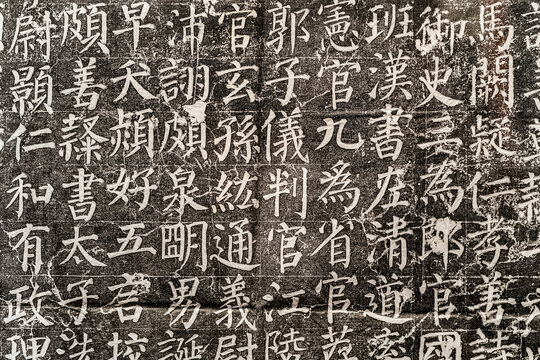 馬闕疑仁孝善詩
御史三為郎官國
班漢書左清道率
憲官九為省官薦
郭子儀判官江陵
官玄孫紘通義尉
沛詡頗泉明易誕
早夭頍好五言校
頗善隸書太子洗
尉顯仁和有政理